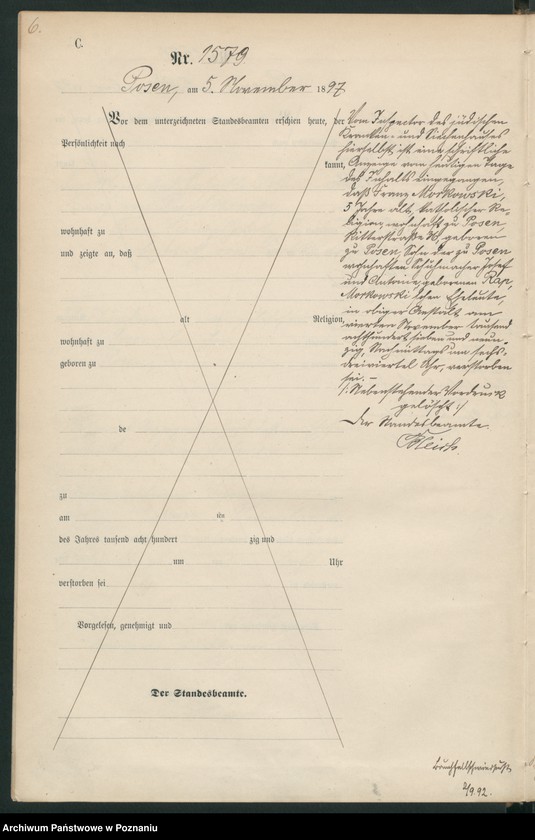 6.
C.
Nr. 1579
Posen, am 5. November 1897
Vor dem unterzeichneten Standesbeamten erschien heute, der
Persönlichkeit nach
kannt,
wohnhaft zu
und zeigte an, daß
alt Religion,
wohnhaft zu
geboren zu
de
zu
am ten
des Jahres tausend acht hundert zig und
um Uhr
verstorben sei
Vorgelesen, genehmigt und
Der Standesbeamte.
Vom Inspector des jüdischen
Kranken- und Siechenhauses
hierselbst ist eine schriftliche
Anzeige vom heutigen Tage
des Inhalts eingegangen,
daß Franz Morkowski,
5 Jahre alt, katholischer Re-
ligion, wohnhaft zu Posen,
Ritterstraße, geboren
zu Posen, Sohn der zu Posen
wohnhaften Schuhmacher Josef
und Antonie, geborenen Rap,
Morkowski'schen Eheleute,
in obiger Anstalt am
vierten November tausend
achthundert sieben und neun-
zig, Nachmittags um sechs
dreiviertel Uhr, verstorben
sei. –
/: Nebenstehender Vordruck
gelöscht :/
Der Standesbeamte.
2/9.92.
Archiwum Państwowe w Poznaniu